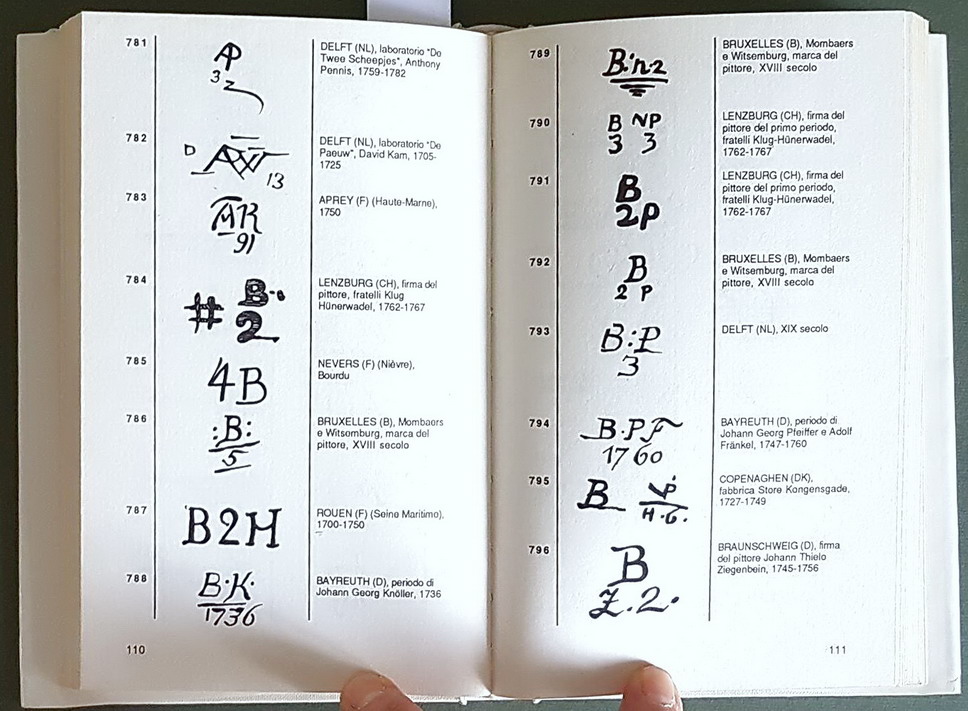 781
AP
32
DELFT (NL), laboratorio "De
Twee Scheepjes", Anthony
Pennis, 1759-1782
782
D
13
DELFT (NL), laboratorio "De
Paeuw", David Kam, 1705-
1725
783
AR
91
APREY (F) (Haute-Marne),
1750
784
# B··
2
LENZBURG (CH), firma del
pittore, fratelli Klug
Hünerwadel, 1762-1767
785
4B
NEVERS (F) (Nièvre),
Bourdu
786
:B:
5
BRUXELLES (B), Mombaers
e Witsemburg, marca del
pittore, XVIII secolo
787
B2H
ROUEN (F) (Seine Maritime),
1700-1750
788
B·K·
1736
BAYREUTH (D), periodo di
Johann Georg Knöller, 1736
110
789
B:n·2
BRUXELLES (B), Mombaers
e Witsemburg, marca del
pittore, XVIII secolo
790
B NP
3 3
LENZBURG (CH), firma del
pittore del primo periodo,
fratelli Klug-Hünerwadel,
1762-1767
791
B
2P
LENZBURG (CH), firma del
pittore del primo periodo,
fratelli Klug-Hünerwadel,
1762-1767
792
B
2 P
BRUXELLES (B), Mombaers
e Witsemburg, marca del
pittore, XVIII secolo
793
B:P
3
DELFT (NL), XIX secolo
794
B·PF
1760
BAYREUTH (D), periodo di
Johann Georg Pfeiffer e Adolf
Fränkel, 1747-1760
795
B
H.G.
COPENAGHEN (DK),
fabbrica Store Kongensgade,
1727-1749
796
B
Z.2.
BRAUNSCHWEIG (D), firma
del pittore Johann Thielo
Ziegenbein, 1745-1756
111